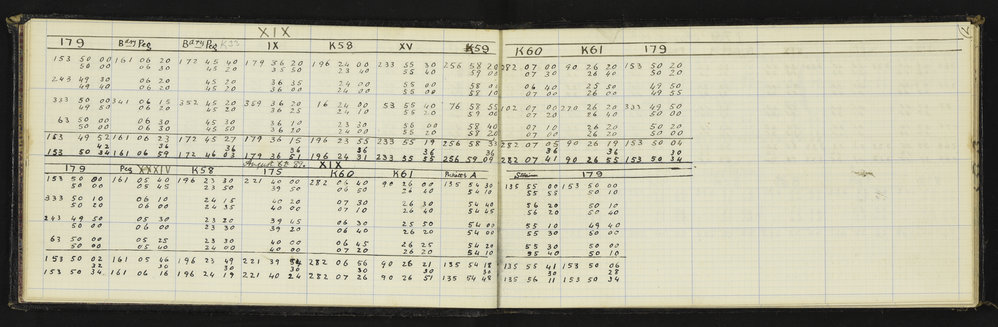 XIX
179 Bdry Peg Bdry Peg K33 IX K58 XV K59 K60 K61 179
153 50 00 161 06 20 172 45 40 179 36 20 196 24 00 233 55 30 256 58 20 282 07 00 90 26 20 153 50 20
50 00 06 30 45 20 35 50 23 40 55 40 59 00 07 30 26 40 50 20
243 49 30 06 20 45 20 36 35 24 00 55 00 58 00 06 40 25 50 49 50
49 40 06 20 45 20 36 00 24 00 55 00 58 10 07 00 26 00 49 55
333 50 00 341 06 15 352 45 20 359 36 20 16 24 00 53 55 40 76 58 55 102 07 00 270 26 20 333 49 50
49 50 06 20 45 20 36 25 24 10 55 20 59 00 07 20 26 40 50 00
63 50 00 06 30 45 30 36 10 23 30 55 00 58 40 07 10 26 20 50 20
50 00 06 30 45 50 36 20 24 00 55 20 58 20 07 00 26 20 50 00
153 49 52 161 06 23 172 45 27 179 36 15 196 23 55 233 55 19 256 58 33 282 07 05 90 26 19 153 50 04
42 36 36 36 36 36 36 36 36 30
153 50 34 161 06 59 172 46 03 179 36 51 196 24 31 233 55 55 256 59 09 282 07 41 90 26 55 153 50 34
August 6th XIX
179 Peg XXXIV K58 175 K60 K61 A 179
153 50 00 161 05 40 196 23 30 221 40 00 282 06 40 90 26 00 135 54 30 135 55 00 153 50 00
50 00 05 45 23 50 39 50 06 50 26 40 54 10 55 55 50 10
333 50 10 06 10 24 15 40 20 07 30 26 30 54 40 56 20 50 10
50 20 06 00 24 35 40 00 07 10 26 40 54 45 56 20 50 40
243 49 50 05 30 23 20 39 45 06 30 25 50 54 00 55 10 49 40
50 00 06 00 23 30 39 20 06 40 26 20 54 00 55 30 50 00
63 50 00 05 25 23 30 40 00 06 45 26 25 54 20 55 30 50 00
50 00 05 40 24 00 40 00 07 20 26 20 54 10 55 40 50 10
153 50 02 161 05 46 196 23 49 221 39 54 282 06 56 90 26 21 135 54 18 135 55 41 153 50 06
32 30 30 30 30 30 30 30 28
153 50 34 161 06 16 196 24 19 221 40 24 282 07 26 90 26 51 135 54 48 135 56 11 153 50 34